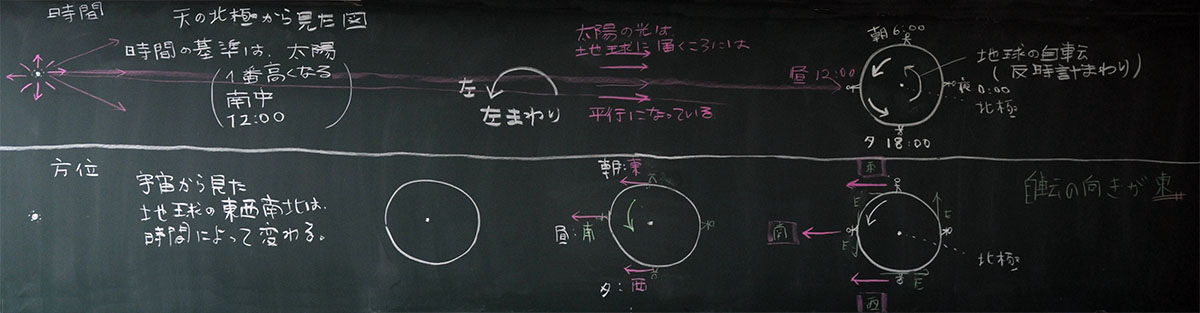 時間
天の北極から見た図
時間の基準は、太陽
1番高くなる
南中
12:00
左
左まわり
太陽の光は
地球に届くころには
平行になっている
朝6:00
昼12:00
夜0:00
夕 18:00
地球の自転
(反時計まわり)
北極
方位
宇宙から見た
地球の東西南北は、
時間によって変わる。
朝:東
昼:南
夕:西
東
南
西
E
E
E
E
北極
自転の向きが東